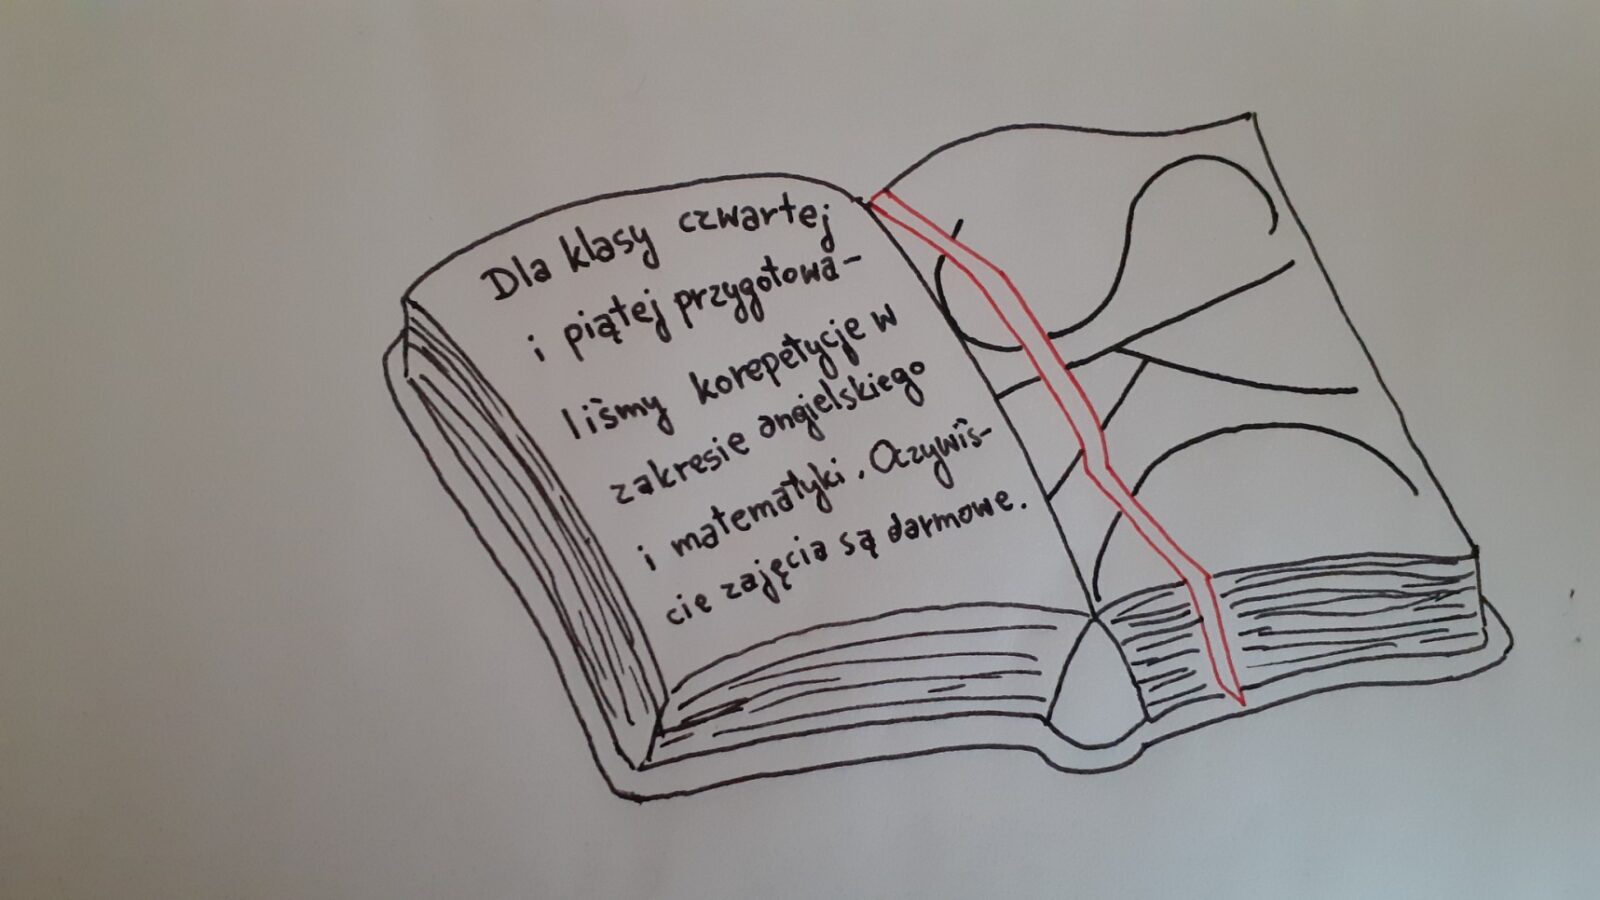 Dla klasy czwartej
i piątej przygotowa-
liśmy korepetycje w
zakresie angielskiego
i matematyki. Oczywiś-
cie zajęcia są darmowe.